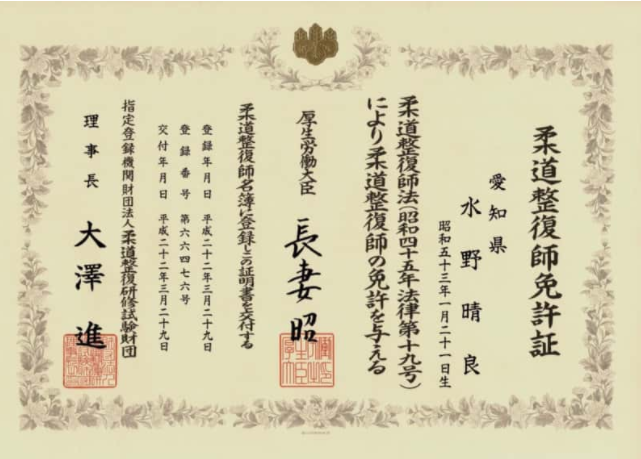 柔道整復師免許証
愛知県
水野晴良
昭和五十三年一月二十一日生
柔道整復師法(昭和四十五年法律第十九号)
により柔道整復師の免許を与える
厚生労働大臣 長妻昭
柔道整復師名簿に登録しこの証明書を交付する
登録年月日 平成二十二年三月二十九日
登録番号 第六六四七六号
交付年月日 平成二十二年三月二十九日
指定登録機関財団法人柔道整復研修試験財団
理事長 大澤進